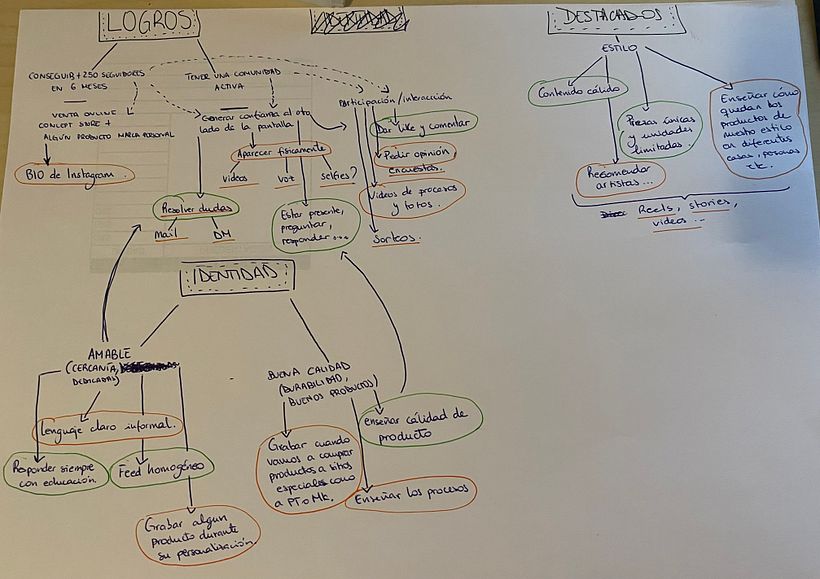 LOGROS
CONSEGUIR +250 SEGUIDORES
EN 6 MESES
VENTA ONLINE
CONCEPT STORE +
ALGÚN PRODUCTO MARCA PERSONAL
BIO de Instagram.
TENER UNA COMUNIDAD
ACTIVA
Generar confianza al otro
lado de la pantalla
Aparecer físicamente
videos
voz
selfies?
Resolver dudas
Mail
DM
Estar presente,
preguntar,
responder ...
Participación/interacción
Dar like y comentar
Pedir opinión,
encuestas.
Videos de procesos
y fotos.
Sorteos.
DESTACADOS
ESTILO
Contenido cálido
Recomendar
artistas...
Piezas únicas
y unidades
limitadas.
Enseñar cómo
quedan los
productos de
nuestro estilo
en diferentes
casas, personas
etc.
Reels, stories,
videos ...
IDENTIDAD
AMABLE
(CERCANÍA,
DEDICADAS)
Lenguaje claro informal.
Responder siempre
con educación.
Feed homogéneo
Grabar algun
producto durante
su personalización.
BUENA CALIDAD
(DURABILIDAD,
BUENOS PRODUCTOS)
enseñar cálidad de
producto
Grabar cuando
vamos a comprar
productos a sitios
especiales como
a PT o Mk.
Enseñar los procesos